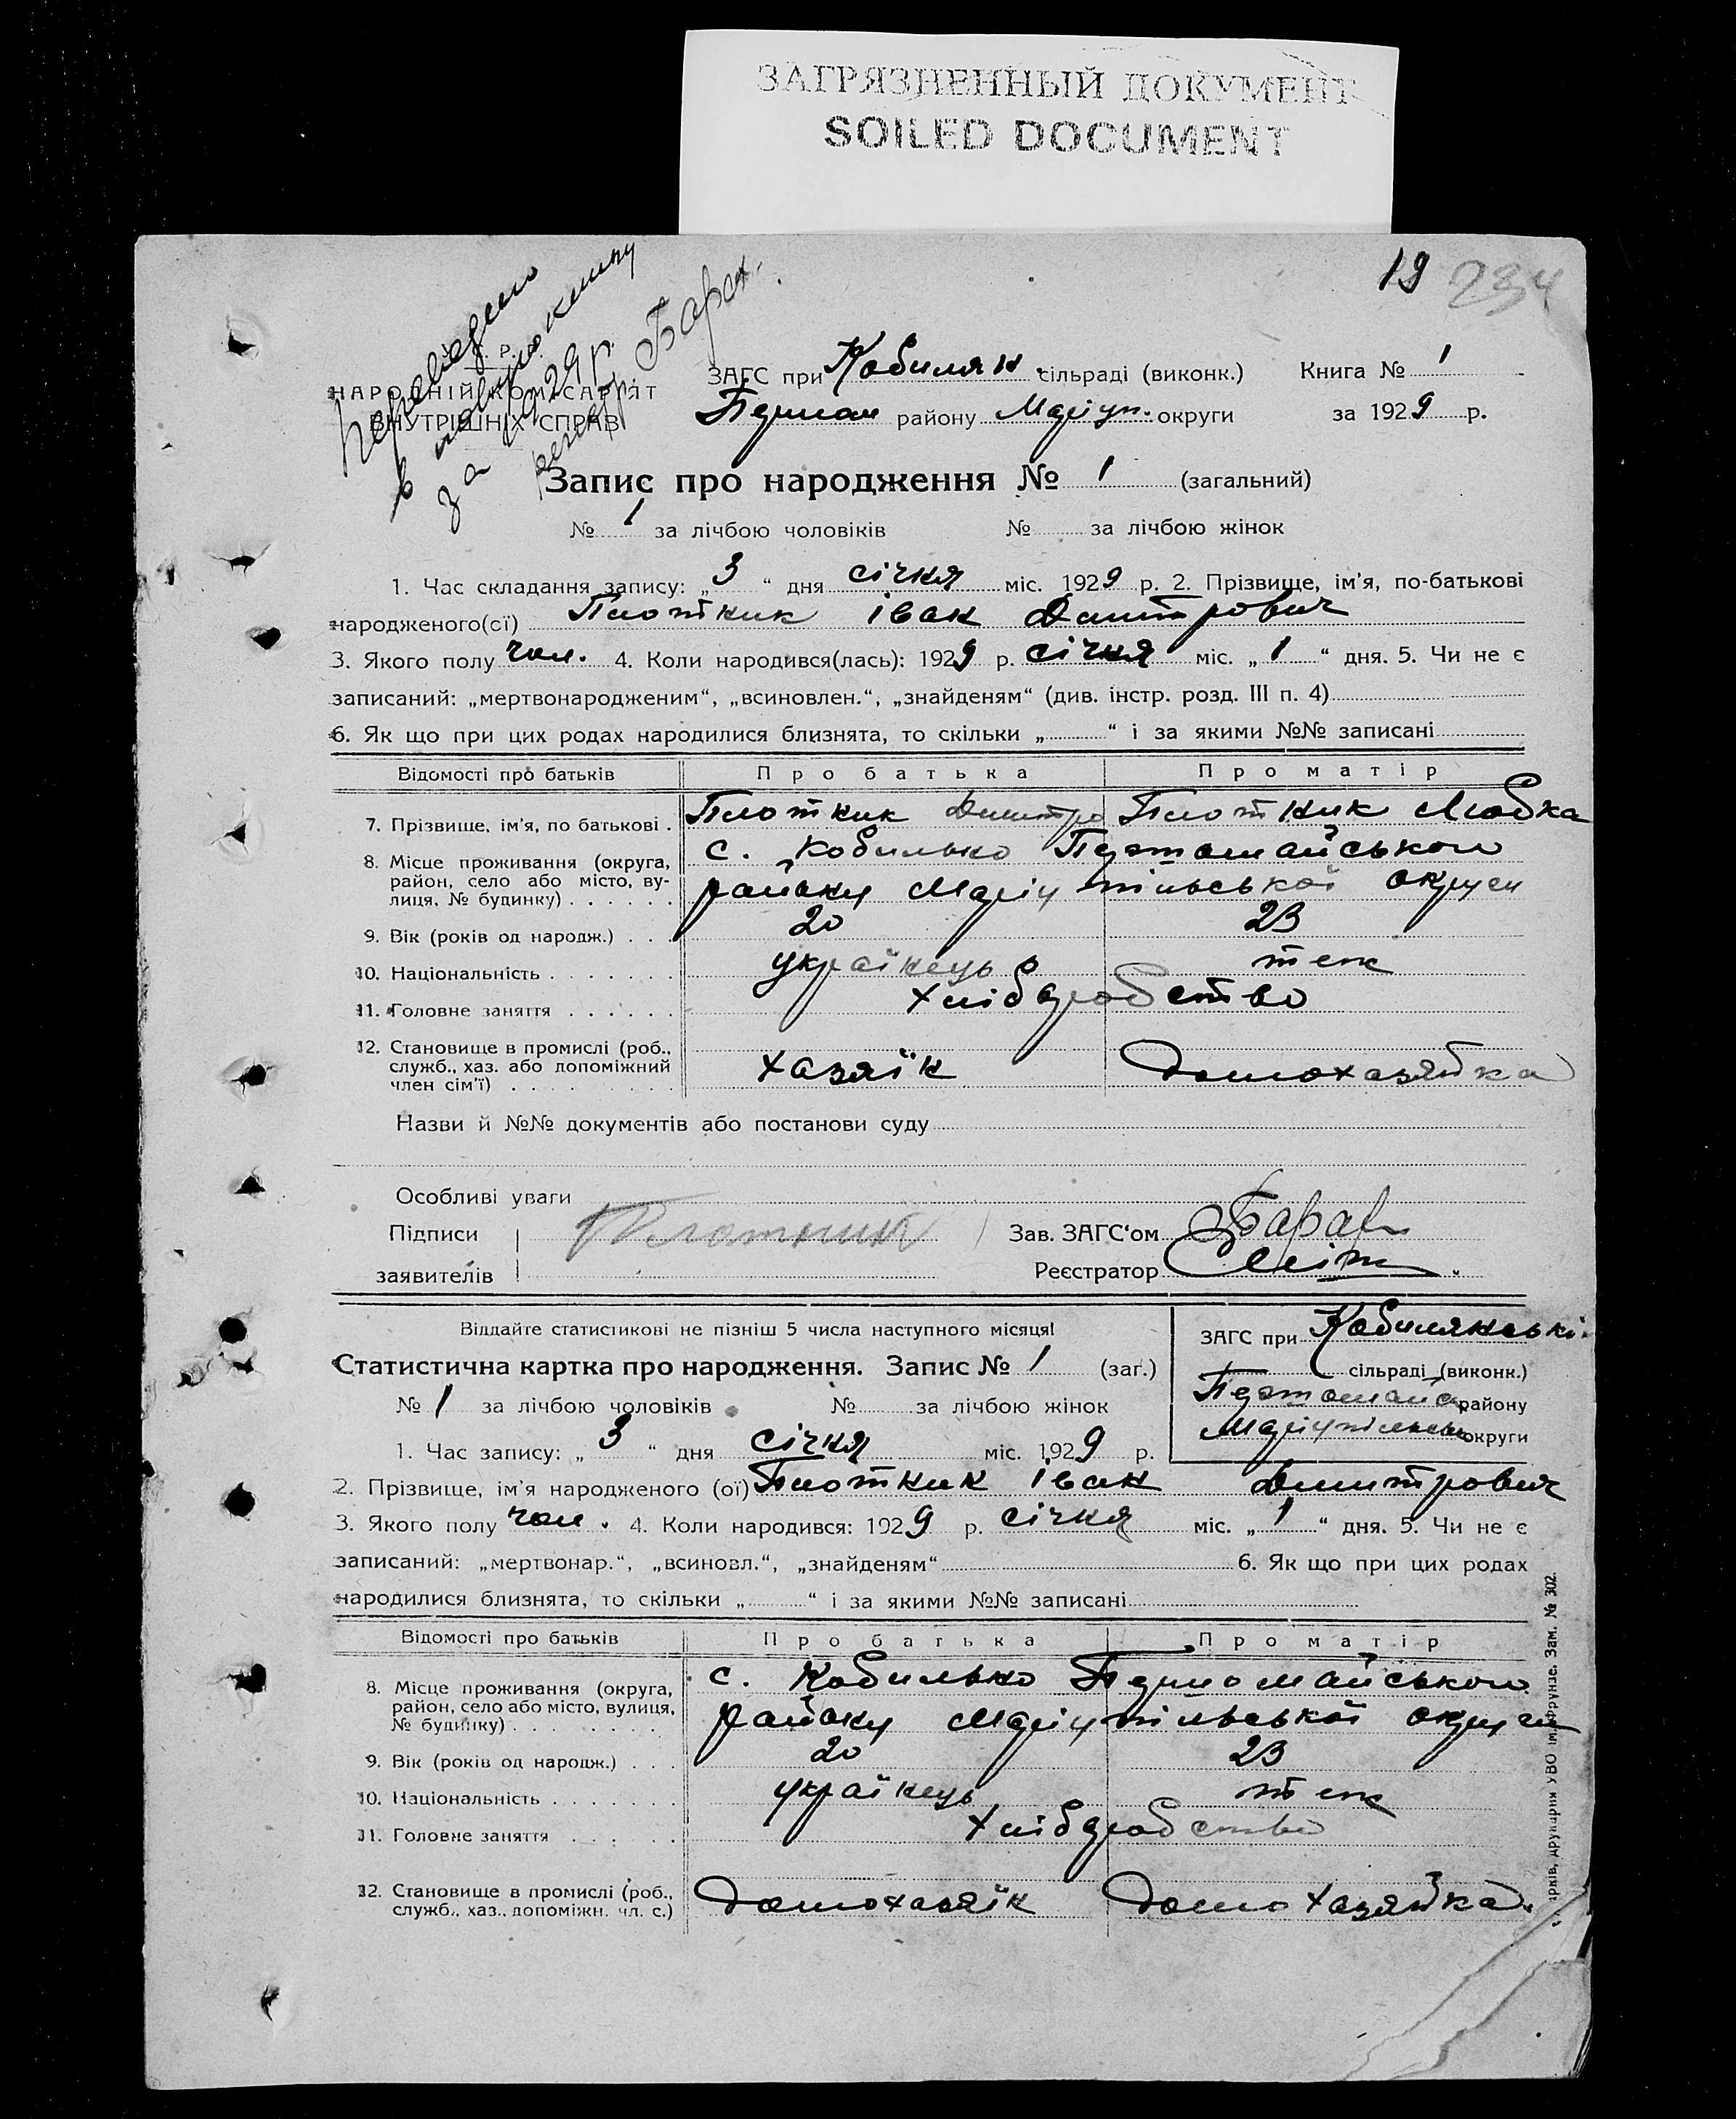 ЗАГРЯЗНЕННЫЙ ДОКУМЕНТ
SOILED DOCUMENT
19 234
Переведено
в новую книгу
за 1929 р.
НАРОДНІЙ КОМІСАРІЯТ
ВНУТРІШНІХ СПРАВ
ЗАГС при Кобиляк. сільраді (виконк.) Книга № 1
Першом району Маріуп. округи за 1929 р.
Запис про народження № 1 (загальний)
№ 1 за лічбою чоловіків № за лічбою жінок
1. Час складання запису: „ 3 “ дня січня міс. 1929 р. 2. Прізвище, ім’я, по-батькові
народженого(сї) Плотник Іван Дмитрович
3. Якого полу чол. 4. Коли народився(лась): 1929 р. січня міс. „ 1 “ дня. 5. Чи не є
записаний: „мертвонародженим“, „всиновлен.“, „знайденям“ (див. інстр. розд. III п. 4)
6. Як що при цих родах народилися близнята, то скільки „ “ і за якими №№ записані
Відомості про батьків Про батька Про матір
7. Прізвище, ім’я, по батькові . Плотник Дмитро Плотник Любка
8. Місце проживання (округа, район, село або місто, вулиця, № будинку) с. Кобилько Першомайського
району Маріупільської округи
9. Вік (років од народж.) 20 23
10. Національність українець теж
11. Головне заняття хліборобство
12. Становище в промислі (роб., служб., хаз. або допоміжний член сім’ї) хазяїн домохазяйка
Назви й №№ документів або постанови суду
Особливі уваги
Підписи Плотник Зав. ЗАГС‘ом
заявителів Реєстратор
Віддайте статистикові не пізніш 5 числа наступного місяця!
ЗАГС при Кобиляковські
Статистична картка про народження. Запис № 1 (заг.)
сільраді (виконк.)
Першомайс району
№ 1 за лічбою чоловіків № за лічбою жінок
Маріупільськ округи
1. Час запису: „ 3 “ дня січня міс. 1929 р.
2. Прізвище, ім’я народженого (ої) Плотник Іван Дмитрович
3. Якого полу чол. 4. Коли народився: 1929 р. січня міс. „ 1 “ дня. 5. Чи не є
записаний: „мертвонар.“, „всиновл.“, „знайденям“ 6. Як що при цих родах
народилися близнята, то скільки „ “ і за якими №№ записані
Відомості про батьків Про батька Про матір
8. Місце проживання (округа, район, село або місто, вулиця, № будинку) с. Кобилько Першомайського
району Маріупільської округи
9. Вік (років од народж.) 20 23
10. Національність українець теж
11. Головне заняття хліборобство
12. Становище в промислі (роб., служб., хаз., допоміжн. чл. с.) домохазяїн домохазяйка.
друкарня УВО ім. Фрунзе. Зам. № 302.